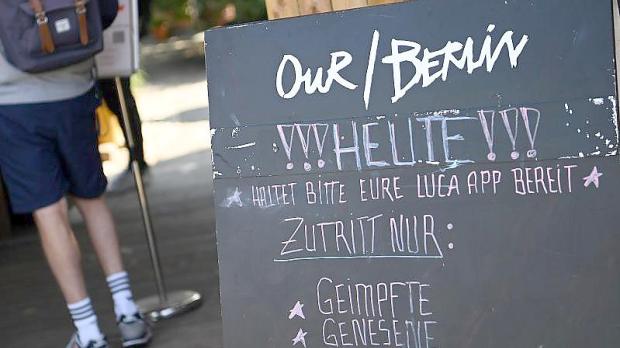 OUR/BERLIN
!!!HEUTE!!!
☆ HALTET BITTE EURE LUCA APP BEREIT ☆
ZUTRITT NUR:
☆ GEIMPFTE
☆ GENESENE